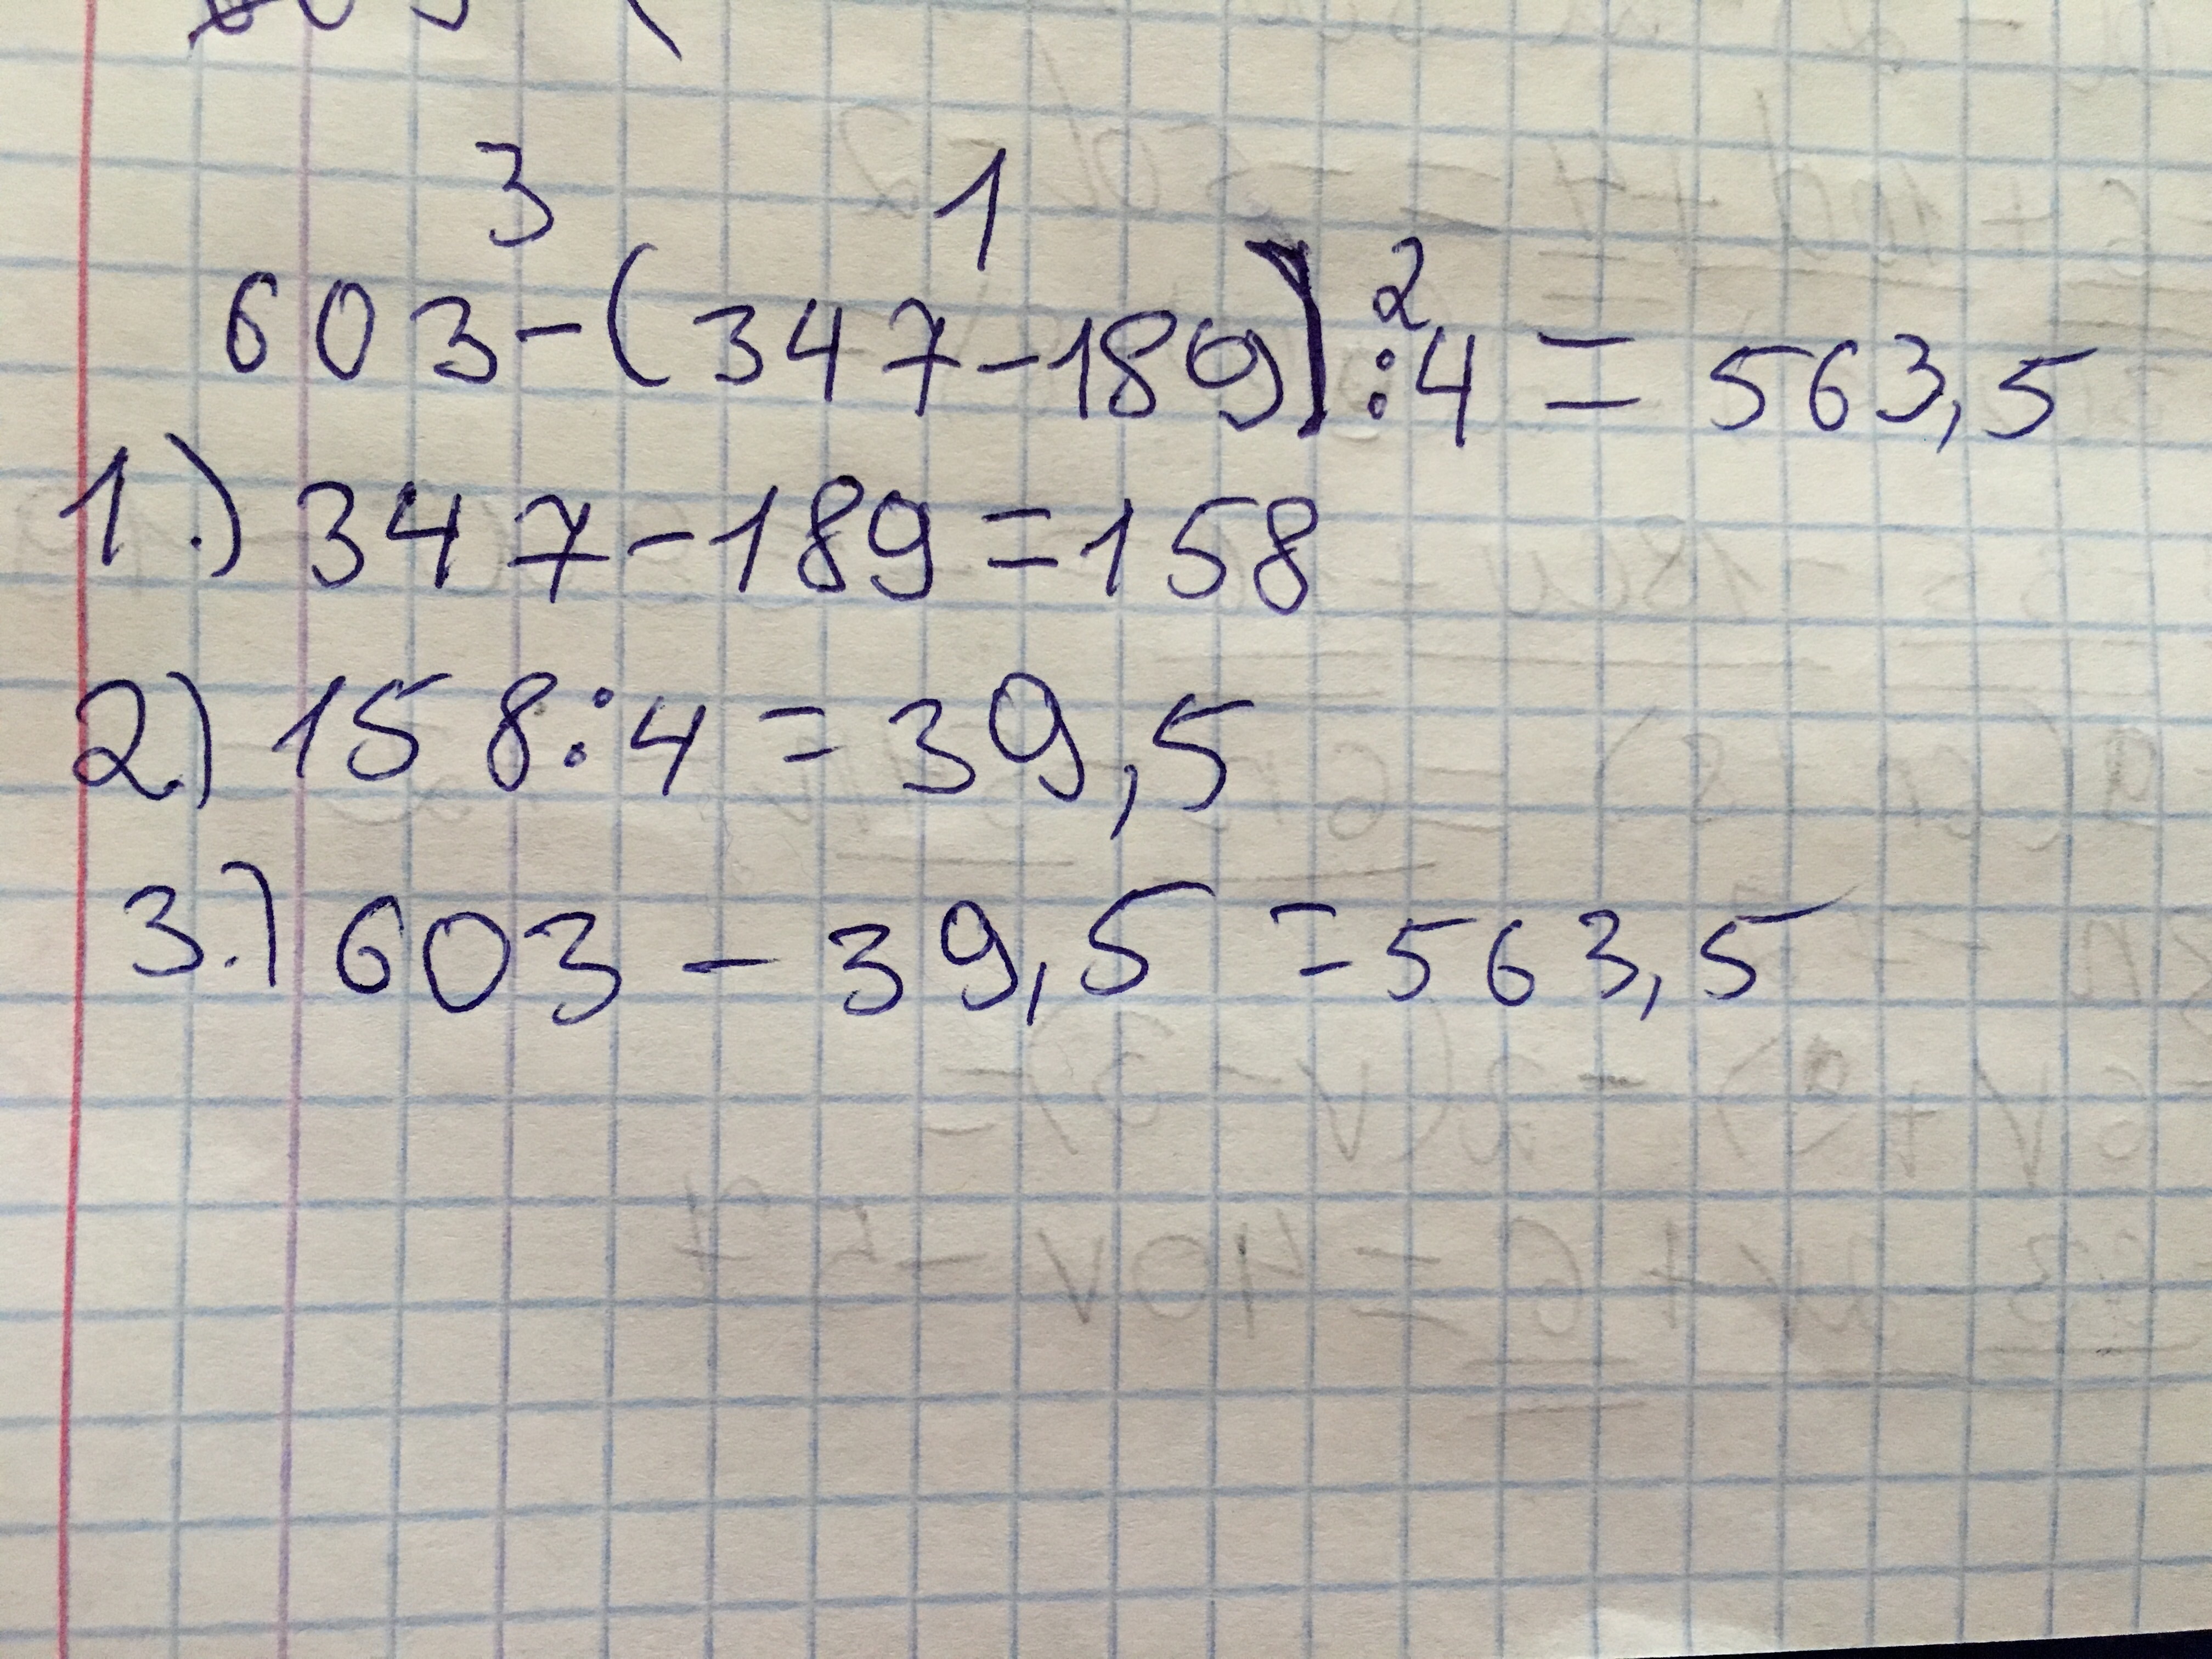 3 1 2
603-(347-189):4=563,5
1.) 347-189=158
2.) 158:4=39,5
3.) 603-39,5=563,5